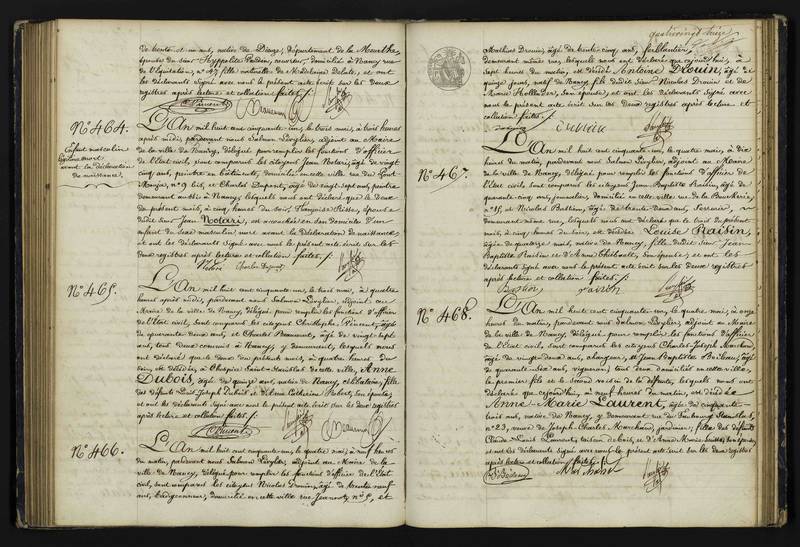 de trente et un ans, native de Dieuze, département de la Meurthe,
épouse du sieur Hyppolite Poidevin, ouvrier, domicilié à Nancy rue
de l'Equitation, n° 47, fille naturelle de Madeleine Delatte, et ont
les déclarants signé avec nous le présent acte écrit sur les deux
registres après lecture et collation faites./.
N° 464.
Enfant masculin
mort
avant la déclaration
de naissance.
L'An mil huit cent cinquante-un, le trois mai, à trois heures
après midi, pardevant nous Salmon Levylier, adjoint au Maire
de la ville de Nancy, délégué pour remplir les fonctions d'officier
de l'Etat civil, sont comparus les citoyens Jean Notari, âgé de vingt
cinq ans, peintre en bâtiments, domicilié en cette ville rue du Pont
n° 9 bis, et Charles Dupont, âgé de vingt-sept ans, peintre
demeurant aussi à Nancy, lesquels nous ont déclaré que le deux
du présent mois, à cinq heures du soir, Françoise Risse, épouse
dudit sieur Jean Notari, est accouchée en son domicile d'un
enfant du sexe masculin mort avant la déclaration de naissance,
et ont les déclarants signé avec nous le présent acte écrit sur les
deux registres après lecture et collation faites./.
Charles Dupont
N° 465.
L'An mil huit cent cinquante-un, le trois mai, à quatre
heures après midi, pardevant nous Salmon Levylier, adjoint au
Maire de la ville de Nancy, délégué pour remplir les fonctions d'officier
de l'Etat civil, sont comparus les citoyens Christophe Vincent, âgé
de quarante-deux ans, et Charles Beaumont, âgé de vingt-sept
ans, tous deux commis à Nancy, y demeurant, lesquels nous
ont déclaré que le deux du présent mois, à quatre heures du
soir, est décédée, à l'hospice Saint-Stanislas de cette ville, Anne
Dubois, âgée de quinze ans, native de Nancy, célibataire, fille
des défunts Louis Joseph Dubois et Catherine Robert, son épouse,
et ont les déclarants signé avec nous le présent acte écrit sur les deux registres
après lecture et collation faites./.
N° 466.
L'An mil huit cent cinquante-un, le quatre mai, à neuf heures
du matin, pardevant nous Salmon Levylier, adjoint au Maire de la
ville de Nancy, délégué pour remplir les fonctions d'officier de l'Etat
civil, sont comparus les citoyens Nicolas Drouin, âgé de trente-neuf
ans, badigeonneur, domicilié en cette ville rue Jeannot, n° 5, et
quatrevingt treize
Mathias Drouin, âgé de trente-cinq ans, ferblantier,
demeurant même rue, lesquels nous ont déclaré que cejourd'hui, à
sept heures du matin, est décédé Antoine Drouin, âgé de
quinze jours, natif de Nancy, fils dudit sieur Nicolas Drouin et de
Marie Hollender, son épouse, et ont les déclarants signé avec
nous le présent acte écrit sur les deux registres après lecture et
collation faites./.
N° 467.
L'An mil huit cent cinquante-un, le quatre mai, à dix
heures du matin, pardevant nous Salmon Levylier, adjoint au Maire
de la ville de Nancy, délégué pour remplir les fonctions d'officier de
l'Etat civil, sont comparus les citoyens Jean Baptiste Raisin, âgé de
quarante-cinq ans, journalier, domicilié en cette ville rue de la Boucherie,
n° 15, et Nicolas Bastien, âgé de trente-deux ans,
demeurant même rue, lesquels nous ont déclaré que le trois du présent
mois, à cinq heures du soir, est décédée Louise Raisin,
âgée de quatorze mois, native de Nancy, fille dudit sieur Jean
Baptiste Raisin et d'Anne Thiébault, son épouse, et ont les
déclarants signé avec nous le présent acte écrit sur les deux registres
après lecture et collation faites./.
Bastien raisin
N° 468.
L'An mil huit cent cinquante-un, le quatre mai, à onze
heures du matin, pardevant nous Salmon Levylier, adjoint au Maire
de la ville de Nancy, délégué pour remplir les fonctions d'officier
de l'Etat civil, sont comparus les citoyens Charles Joseph Marchal,
âgé de vingt-deux ans, et Jean Baptiste Boileau, âgé
de quarante-six ans, vigneron, tous deux domiciliés en cette ville,
le premier fils et le second voisin de la défunte, lesquels nous ont
déclaré que cejourd'hui, à neuf heures du matin, est décédée
Anne Marie Laurent, âgée de cinquante-
trois ans, native de Nancy, y demeurant rue du Faubourg Stanislas,
n° 23, veuve de Joseph Charles Marchal, jardinier, fille des défunts
Claude Louis Laurent, et d'Anne Marie son épouse,
et ont les déclarants signé avec nous le présent acte écrit sur les deux registres
après lecture et collation faites./.